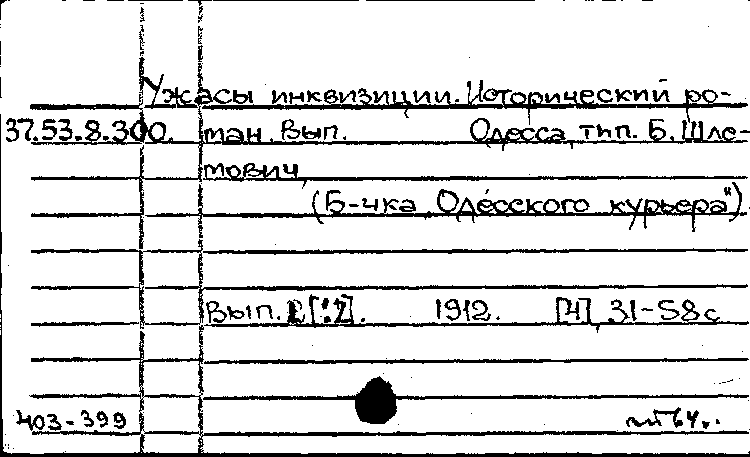 Ужасы инквизиции. Исторический ро-
37.53.8.300. ман. Вып. Одесса, тип. Б. Шле-
мович,
(Б-чка „Одесского курьера")
Вып. [:2]. 1912. [4], 31-58 с
403-399